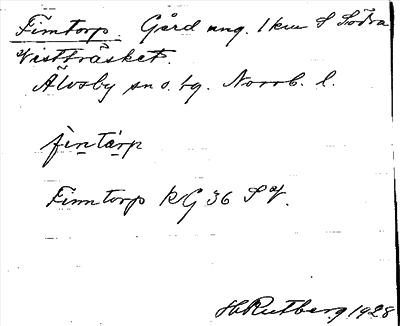 Finntorp. Gård ung. 1 km S Södra
Vistträsket.
Älvsby sn o. hg. Norrb. l.
fìntár̥p
Finntorp RG 36 SV.
H Rutberg 1928